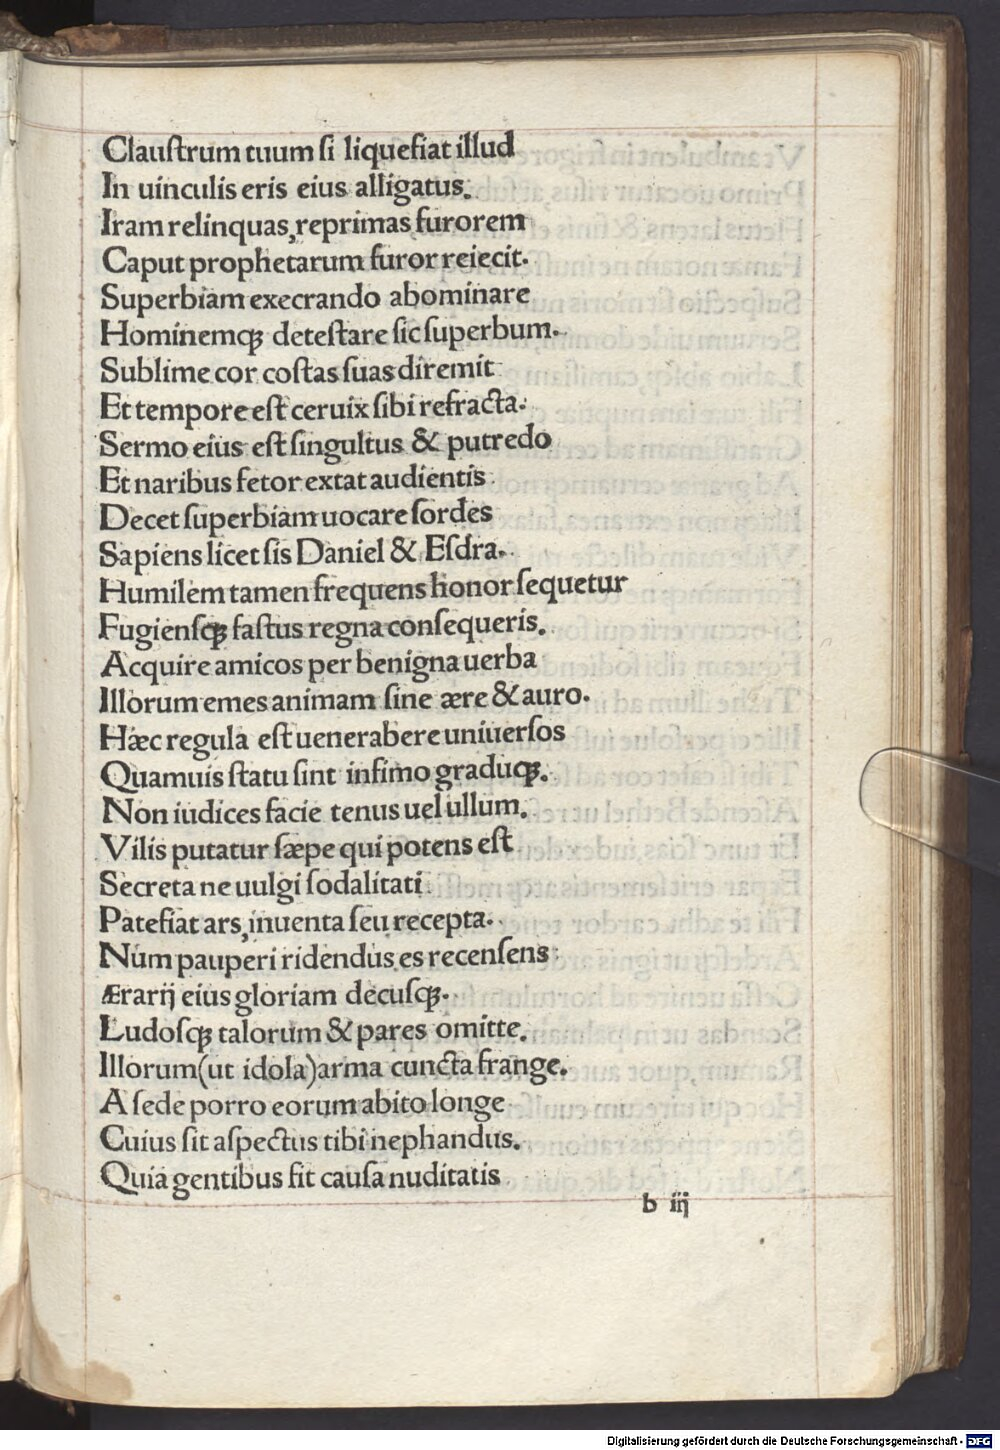 Clauſtrum tuum ſi liquefiat illud
In uinculis eris eius alligatus.
Iram relinquas, reprimas furorem
Caput prophetarum furor reiecit.
Superbiam execrando abominare
Hominemqꝫ deteſtare ſic ſuperbum.
Sublime cor coſtas ſuas diremit
Et tempore eſt ceruix ſibi refracta.
Sermo eius eſt ſingultus & putredo
Et naribus fetor extat audientis
Decet ſuperbiam uocare ſordes
Sapiens licet ſis Daniel & Eſdra.
Humilem tamen frequens honor ſequetur
Fugienſqꝫ faſtus regna conſequeris.
Acquire amicos per benigna uerba
Illorum emes animam ſine ære & auro.
Hæc regula eſt uenerabere uniuerſos
Quamuis ſtatu ſint infimo graduqꝫ.
Non iudices facie tenus uel ullum.
Vilis putatur ſæpe qui potens eſt
Secreta ne uulgi ſodalitati
Patefiat ars, inuenta ſeu recepta.
Num pauperi ridendus es recenſens
Ærarij eius gloriam decuſqꝫ.
Ludoſqꝫ talorum & pares omitte.
Illorum (ut idola) arma cuncta frange.
A ſede porro eorum abito longe
Cuius ſit aſpectus tibi nephandus.
Quia gentibus fit cauſa nuditatis
b iij
Digitalisierung gefördert durch die Deutsche Forschungsgemeinschaft - DFG